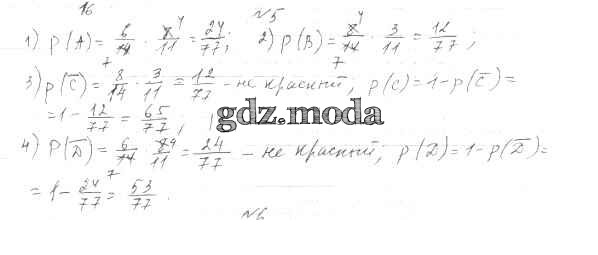 16
№5
1) p(A) = 6/14 · 8/11 = 24/77; 2) p(B) = 8/14 · 3/11 = 12/77;
3) p(C̅) = 8/14 · 3/11 = 12/77 - не красный, p(C) = 1 - p(C̅) =
= 1 - 12/77 = 65/77;
gdz.moda
4) P(D̅) = 6/14 · 8/11 = 24/77 - не красный, p(D) = 1 - p(D̅) =
= 1 - 24/77 = 53/77.
№6